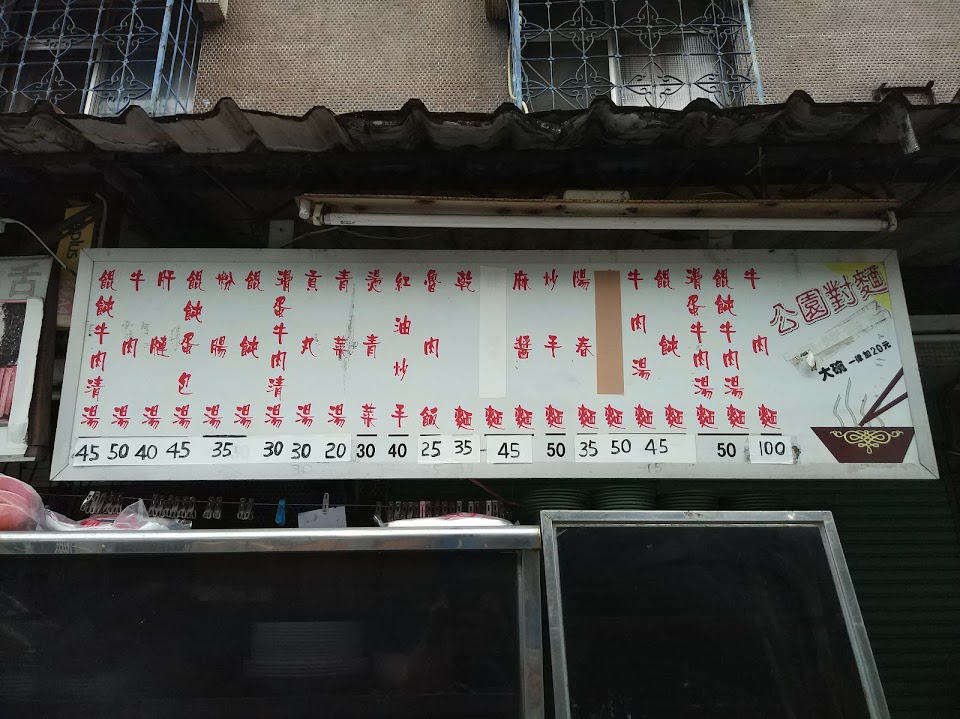 公園對麵
大碗一律加20元
牛肉麵
餛飩牛肉湯麵
滑蛋牛肉湯麵
餛飩麵
牛肉湯麵
麵
陽春麵
炒手麵
麻醬麵
麵
乾麵
魯肉飯
紅油炒手
燙青菜
青菜湯
貢丸湯
滑蛋牛肉清湯
餛飩湯
粉腸湯
餛飩蛋包湯
肝湯
牛肉湯
餛飩牛肉清湯
45 50 40 45 35 30 30 20 30 40 25 35 45 50 35 50 45 50 100
plus
舌